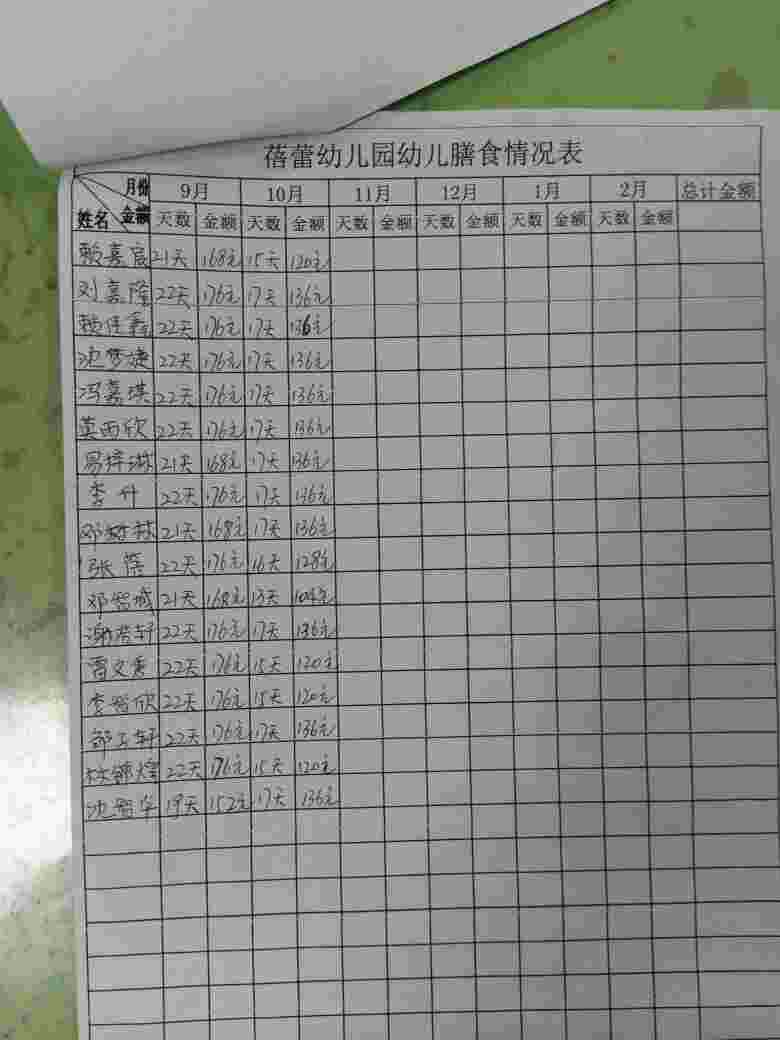 蓓蕾幼儿园幼儿膳食情况表
月份 9月 10月 11月 12月 1月 2月 总计金额
姓名 金额 天数 金额 天数 金额 天数 金额 天数 金额 天数 金额 天数 金额
赖嘉宸 21天 168元 15天 120元
刘嘉隆 22天 176元 17天 136元
赖佳鑫 22天 176元 17天 136元
沈梦婕 22天 176元 17天 136元
冯嘉琪 22天 176元 17天 136元
莫西欣 22天 176元 17天 136元
易梓淋 21天 168元 17天 136元
李什 22天 176元 17天 136元
邓树林 21天 168元 17天 136元
张 22天 176元 16天 128元
邓智城 21天 168元 13天 104元
谢浩轩 22天 176元 17天 136元
曹文 22天 176元 15天 120元
李智欣 22天 176元 15天 120元
邹子轩 22天 176元 17天 136元
林锦煌 22天 176元 15天 120元
沈智华 19天 152元 17天 136元